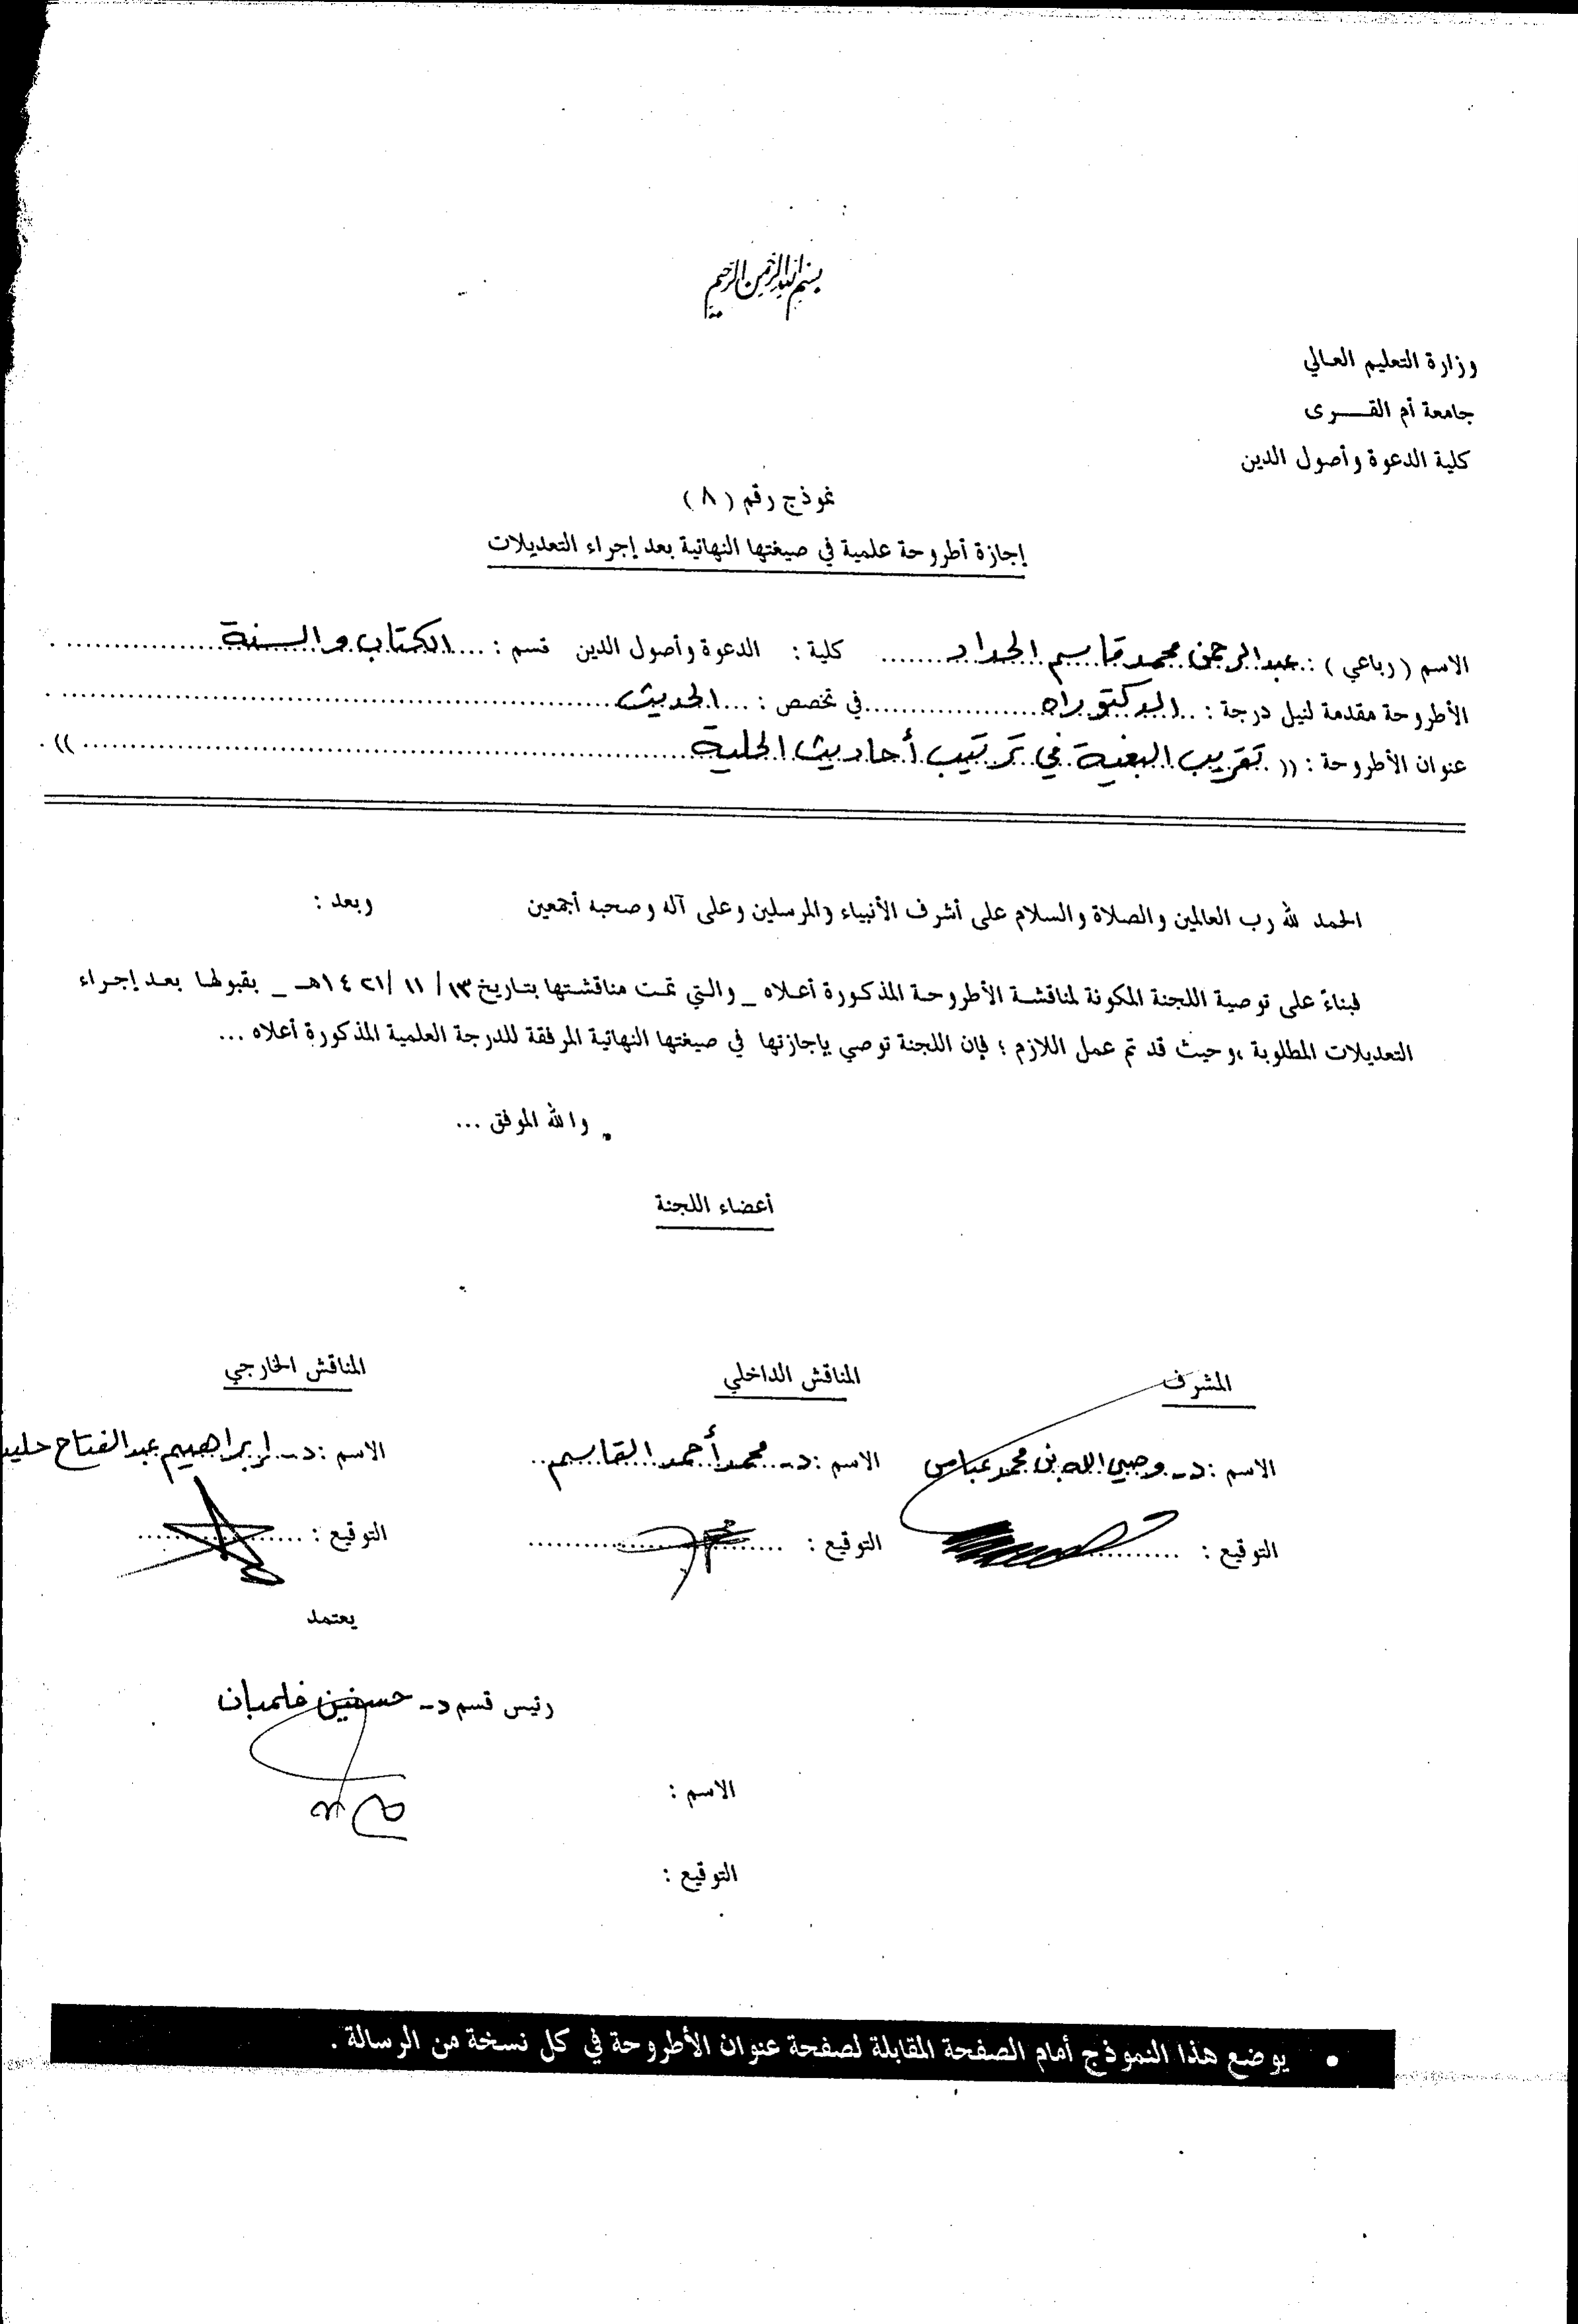 بسم الله الرحمن الرحيم
وزارة التعليم العالي
جامعة أم القــــرى
كلية الدعوة وأصول الدين
نموذج رقم (٨)
إجازة أطروحة علمية في صيغتها النهائية بعد إجراء التعديلات
الاسم (رباعي) : عبدالرحمن محمد قاسم الحداد كلية : الدعوة وأصول الدين قسم : الكتاب والسنة
الأطروحة مقدمة لنيل درجة : الدكتوراه في تخصص : الحديث
عنوان الأطروحة : (( تقريب البغية في ترتيب أحاديث الحلية ))
الحمد لله رب العالمين والصلاة والسلام على أشرف الأنبياء والمرسلين وعلى آله وصحبه أجمعين وبعد :
فبناءً على توصية اللجنة المكونة لمناقشة الأطروحة المذكورة أعلاه _ والتي تمت مناقشتها بتاريخ ١٣/ ١١ /١٤٢١هـ _ بقبولها بعد إجراء
التعديلات المطلوبة ،وحيث قد تم عمل اللازم ؛ فإن اللجنة توصي بإجازتها في صيغتها النهائية المرفقة للدرجة العلمية المذكورة أعلاه ...
والله الموفق ...
أعضاء اللجنة
المشرف المناقش الداخلي المناقش الخارجي
الاسم : د- وصي الله بن محمد عباس الاسم : د- محمد أحمد القاسم الاسم : د- إبراهيم عبدالفتاح
التوقيع : التوقيع : التوقيع :
يعتمد
رئيس قسم د- فلمبان
الاسم :
التوقيع :
• يوضع هذا النموذج أمام الصفحة المقابلة لصفحة عنوان الأطروحة في كل نسخة من الرسالة .